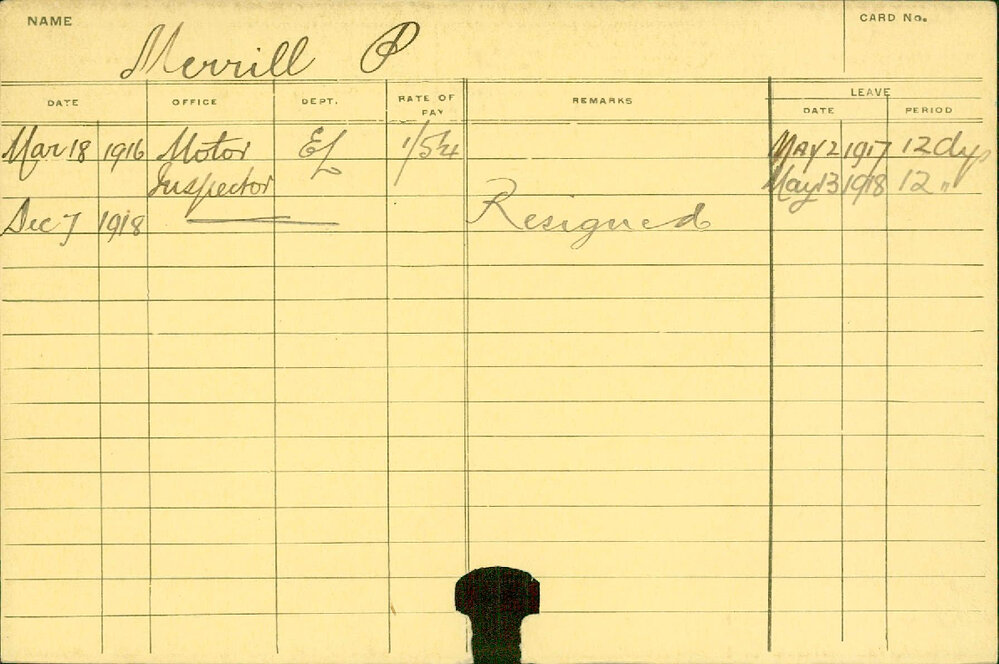 NAME Merrill P CARD No.
DATE OFFICE DEPT. RATE OF PAY REMARKS LEAVE
DATE PERIOD
Mar 18 1916 Motor EL 1/5¼ May 2 1917 12 dys
Inspector May 13 1918 12 "
Dec 7 1918 Resigned